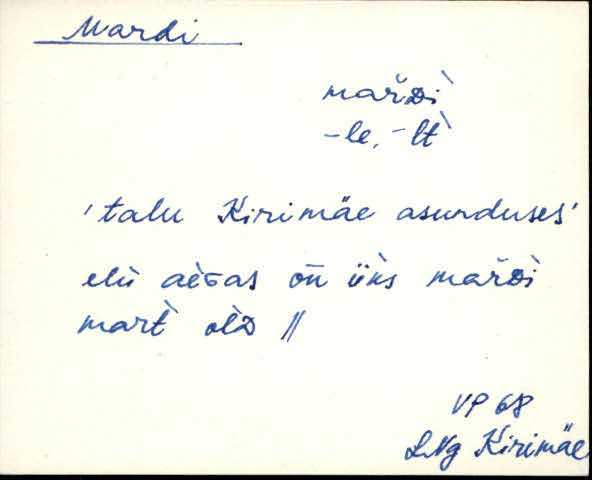 Mardi
mar̆Dì
-le, -lt̀
'talu Kirimäe asunduses'
elu aèGas oñ üks mar̆Dì
mart̀ olD ||
VP 68
LNg Kirimäe